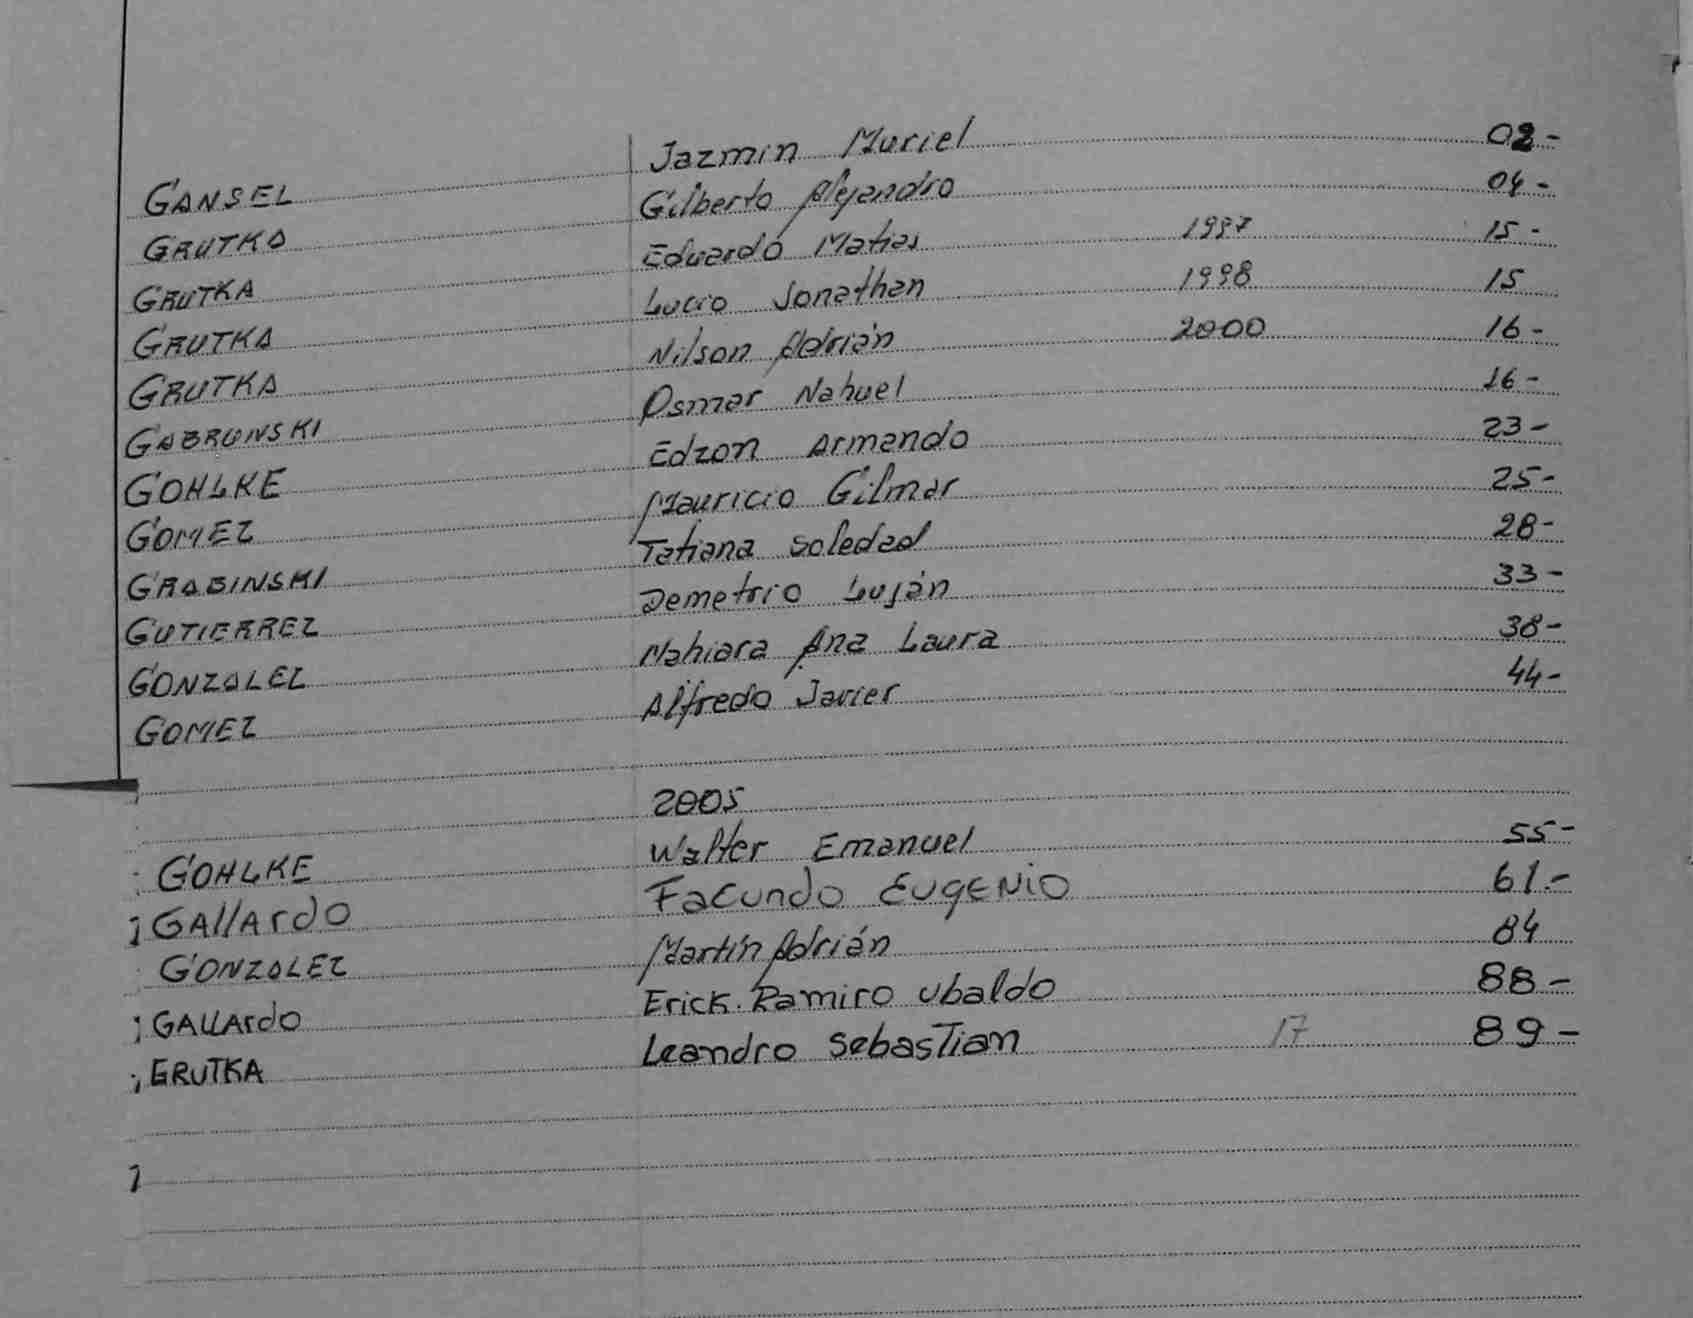 GANSEL Jazmin Muriel 02-
GRUTKA Gilberto Alejandro 04-
GRUTKA Eduardo Matias 1997 15-
GRUTKA Lucio Jonathan 1998 15
GRUTKA Nilson Adrián 2000 16-
GABRUNSKI Osmar Nahuel 16-
GOHLKE Edzon Armando 23-
GOMEZ Mauricio Gilmar 25-
GRABINSKI Tatiana Soledad 28-
GUTIERREZ Demetrio Luján 33-
GONZALEZ Nahiara Ana Laura 38-
GOMEZ Alfredo Javier 44-
2005
GOHLKE Walter Emanuel 55-
GAllArdO Facundo EugENio 61.-
GONZALEZ Martín Adrián 84
GALLArdo Erick Ramiro Ubaldo 88-
GRUTKA Leandro SebasTian 17 89-